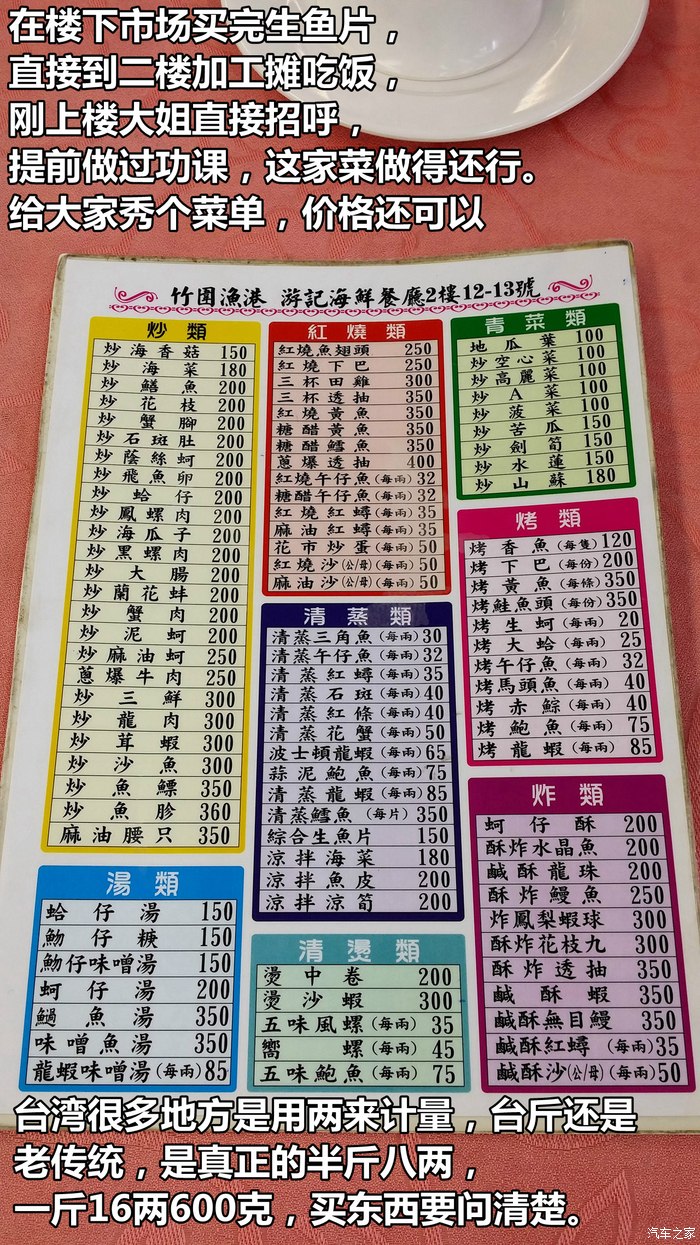 在楼下市场买完生鱼片，
直接到二楼加工摊吃饭，
刚上楼大姐直接招呼，
提前做过功课，这家菜做得还行。
给大家秀个菜单，价格还可以
竹围漁港 游記海鮮餐廳2樓12-13號
炒類
炒海香菇 150
炒海菜 180
炒鱔魚 200
炒花枝 200
炒蟹腳 200
炒石斑肚 200
炒蔭絲蚵 200
炒飛魚卵 200
炒蛤仔 200
炒鳳螺肉 200
炒海瓜子 200
炒黑螺肉 200
炒大腸 200
炒蘭花蚌 200
炒蟹肉 200
炒泥蚵 200
炒麻油蚵 250
蔥爆牛肉 250
炒三鮮 300
炒龍肉 300
炒茸蝦 300
炒沙魚 300
炒魚鰾 350
炒魚胗 360
麻油腰只 350
湯類
蛤仔湯 150
魩仔羹 150
魩仔味噌湯 150
蚵仔湯 200
魚湯 350
味噌魚湯 350
龍蝦味噌湯(每兩) 85
紅燒類
紅燒魚翅頭 250
紅燒下巴 250
三杯田雞 300
三杯透抽 350
紅燒黃魚 350
糖醋黃魚 350
糖醋鱈魚 350
蔥爆透抽 400
紅燒午仔魚(每兩) 32
糖醋午仔魚(每兩) 32
紅燒紅蟳(每兩) 35
麻油紅蟳(每兩) 35
花市炒蛋(每兩) 50
紅燒沙(公/母)(每兩) 50
麻油沙(公/母)(每兩) 50
清蒸類
清蒸三角魚(每兩) 30
清蒸午仔魚(每兩) 32
清蒸紅蟳(每兩) 35
清蒸石斑(每兩) 40
清蒸紅條(每兩) 40
清蒸花蟹(每兩) 50
波士頓龍蝦(每兩) 65
蒜泥鮑魚(每兩) 75
清蒸龍蝦(每兩) 85
清蒸鱈魚(每片) 350
綜合生魚片 150
涼拌海菜 180
涼拌魚皮 200
涼拌涼筍 200
清燙類
燙中卷 200
燙沙蝦 300
五味風螺(每兩) 35
嚮螺(每兩) 45
五味鮑魚(每兩) 75
青菜類
地瓜葉 100
炒空心菜 100
炒高麗菜 100
炒A菜 100
炒菠菜 100
炒苦瓜 150
炒劍筍 150
炒水蓮 150
炒山蘇 180
烤類
烤香魚(每隻) 120
烤下巴(每份) 200
烤黃魚(每條) 350
烤鮭魚頭(每份) 350
烤生蚵(每兩) 20
烤大蛤(每兩) 25
烤午仔魚(每兩) 32
烤馬頭魚(每兩) 40
烤赤鯮(每兩) 40
烤鮑魚(每兩) 75
烤龍蝦(每兩) 85
炸類
蚵仔酥 200
酥炸水晶魚 200
鹹酥龍珠 200
酥炸鰻魚 250
炸鳳梨蝦球 300
酥炸花枝丸 300
酥炸透抽 350
鹹酥蝦 350
鹹酥無目鰻 350
鹹酥紅蟳(每兩) 35
鹹酥沙(公/母)(每兩) 50
台湾很多地方是用两来计量，台斤还是
老传统，是真正的半斤八两，
一斤16两600克，买东西要问清楚。
汽车之家